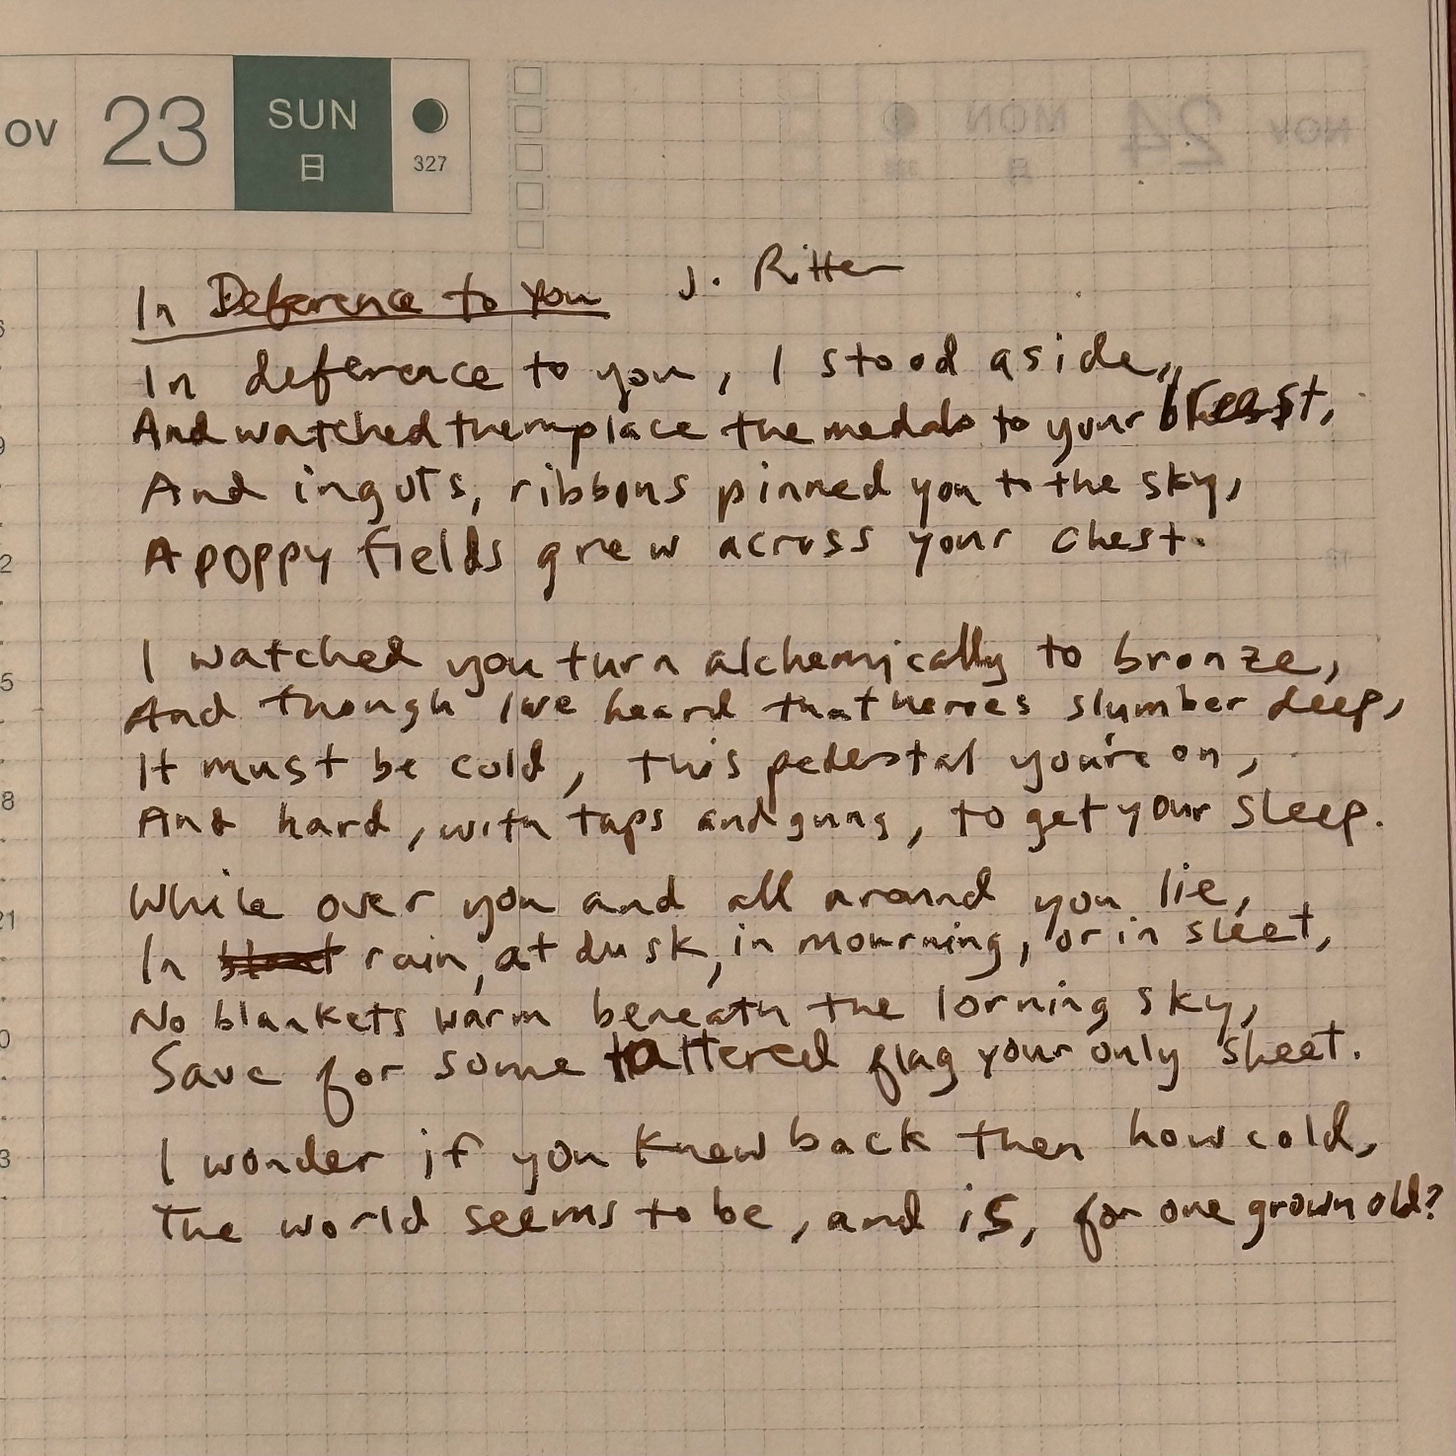 OV 23 SUN
日
327
NOV 24 MON
月
In Deference to You J. Ritter
In deference to you, I stood aside,
And watched them place the medals to your breast,
And ingots, ribbons pinned you to the sky,
A poppy fields grew across your chest.
I watched you turn alchemically to bronze,
And though I've heard that heroes slumber deep,
It must be cold, this pedestal you're on,
And hard, with taps and guns, to get your sleep.
While over you and all around you lie,
In rain, at dusk, in mourning, or in sleet,
No blankets warm beneath the lorning sky,
Save for some tattered flag your only sheet.
I wonder if you knew back then how cold,
The world seems to be, and is, for one grown old?